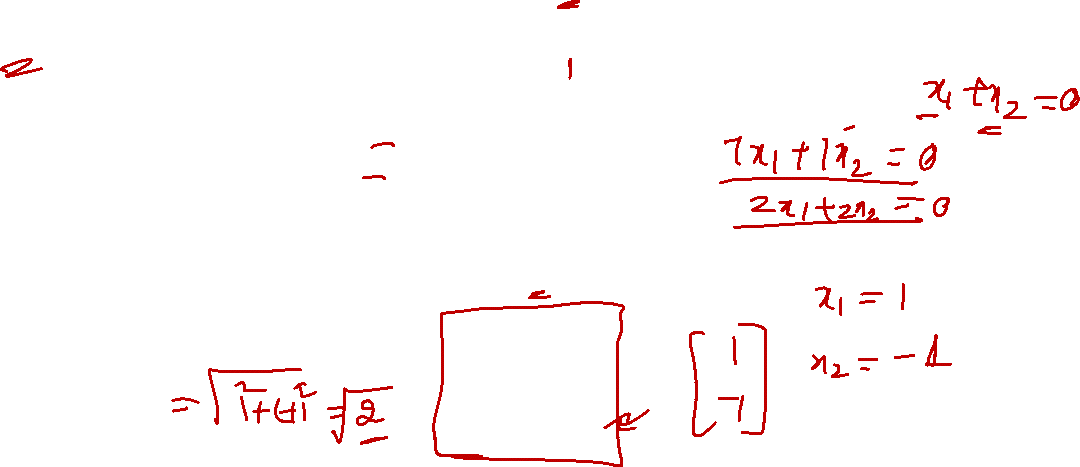 1
x₁ + x₂ = 0
=
7x₁ + 7x₂ = 0
2x₁ + 2x₂ = 0
x₁ = 1
x₂ = -1
[1
-1]
= √1² + (-1)² = √2